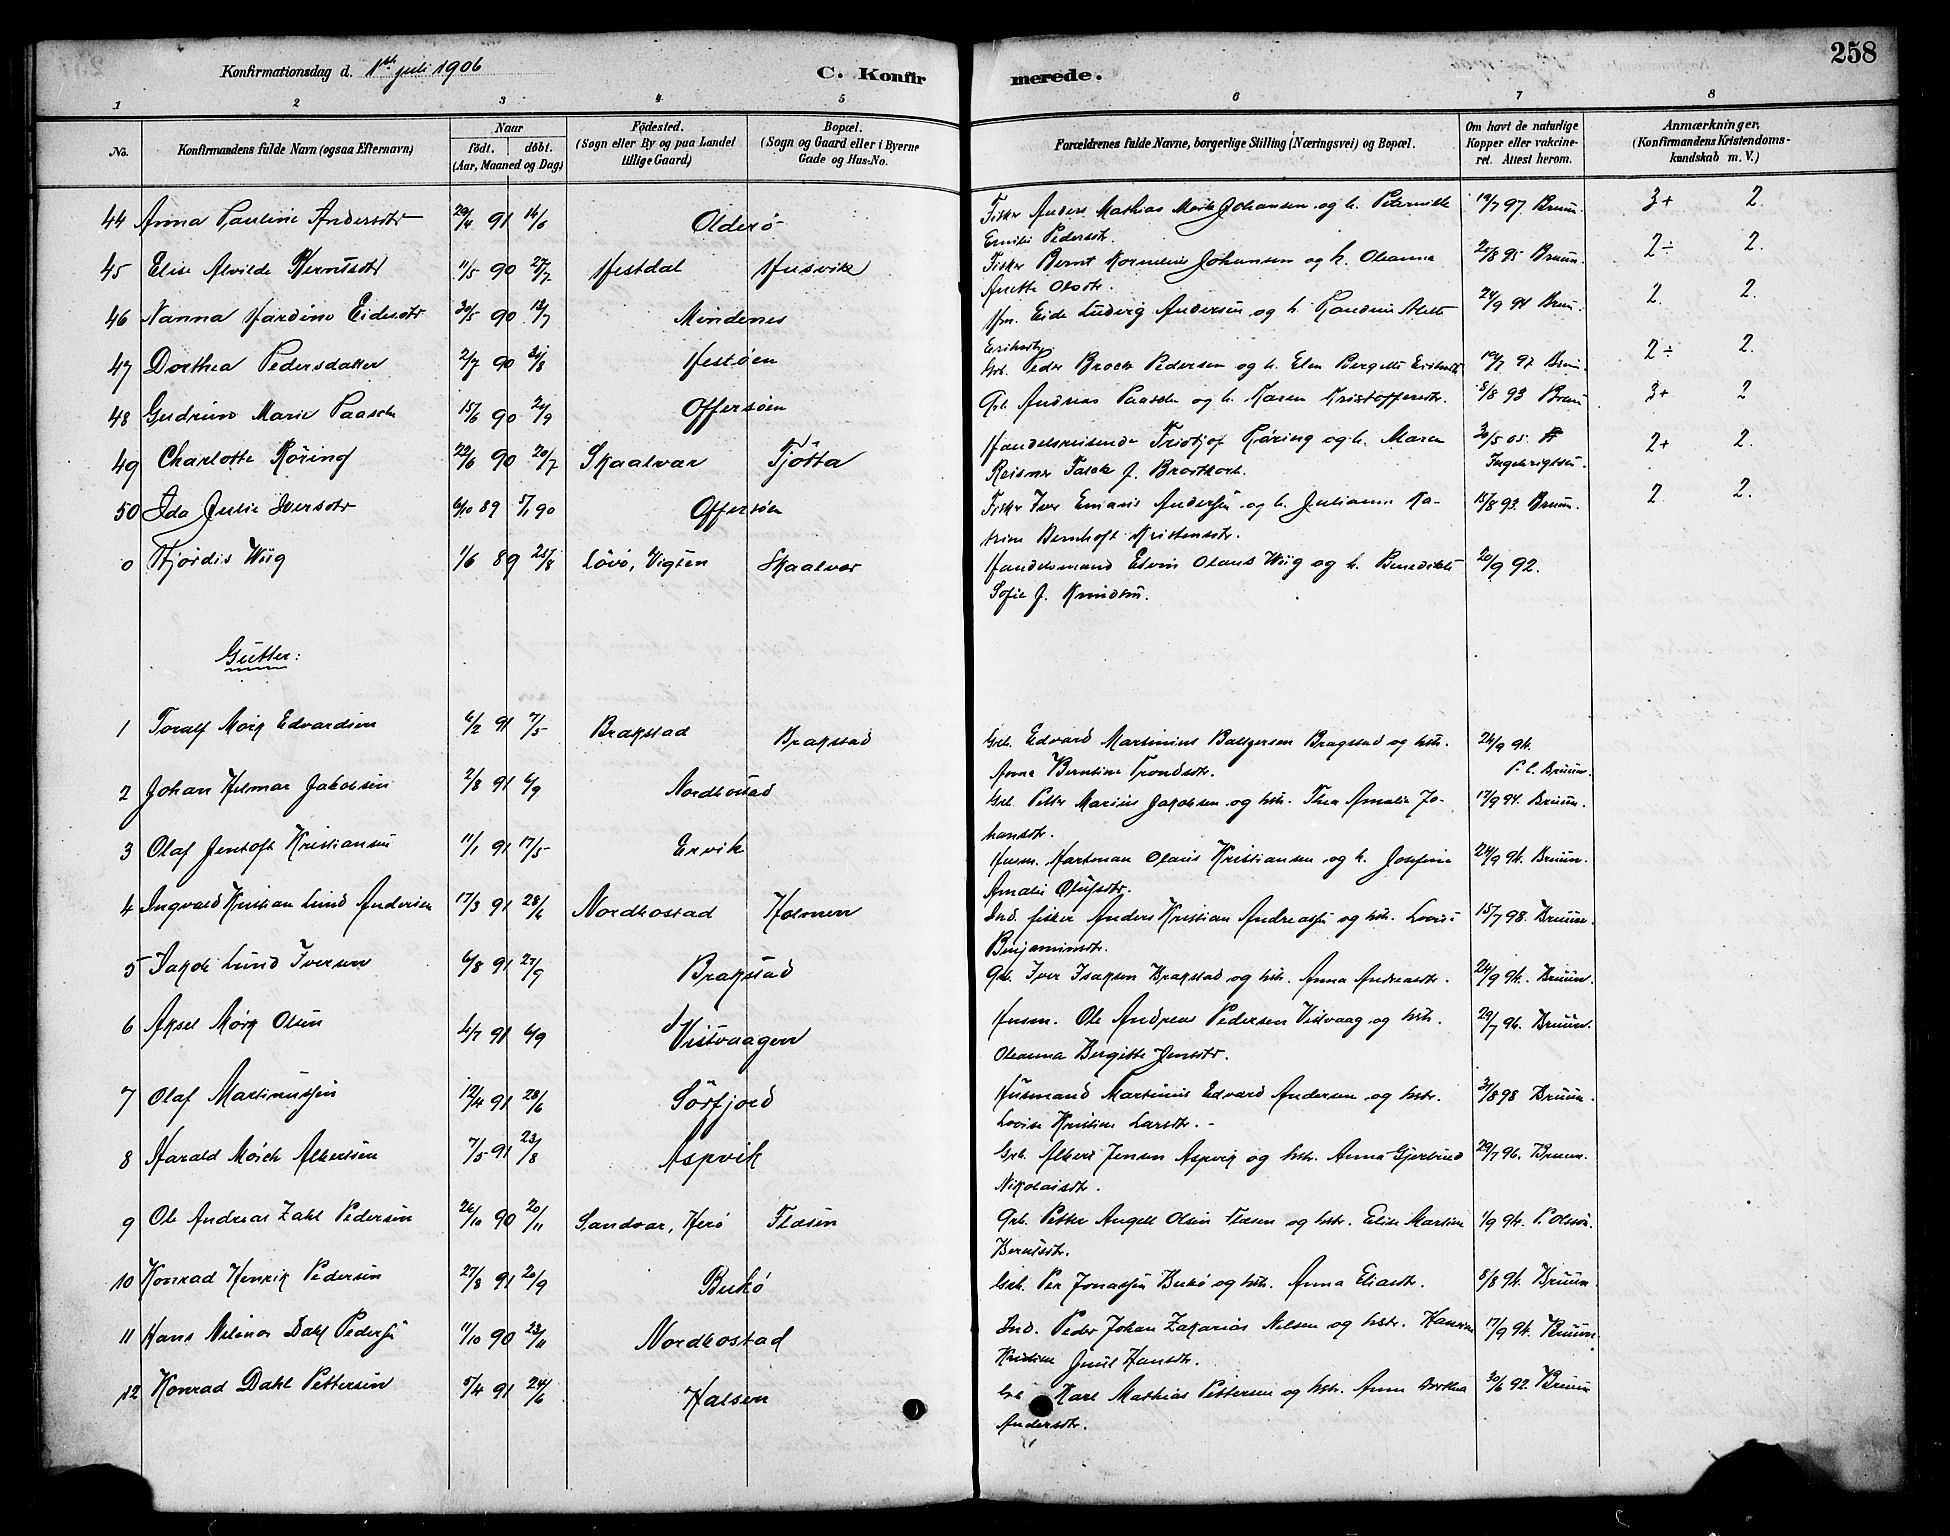 258
Konfirmationsdag d. 1ste juli 1906
C. Konfirmerede.
1 2 3 4 5 6 7 8
No.
Konfirmandens fulde Navn (ogsaa Efternavn)
Naar
födt. döbt.
(Aar, Maaned og Dag)
Födested.
(Sogn eller By og paa Landet
tillige Gaard)
Bopæl.
(Sogn og Gaard eller i Byerne
Gade og Hus-No.
Forældrenes fulde Navne, borgerlige Stilling (Næringsvei) og Bopæl.
Om havt de naturlige
Kopper eller vakcine-
ret. Attest herom.
Anmærkninger,
(Konfirmandens Kristendoms-
kundskab m. V.)
44 Anna Pauline Andersdtr 29/4 91 14/6 Olderö Fisker Anders Mathias Johansen og h. Peternille 19/7 97. Bruun. 3+ 2.
Emilie Pedersdtr.
45 Elise Alvilde Berntsdtr 11/5 90 27/7 Hestdal Husvik Fisker Bernt Kornelius Johansen og h. Oleanna 20/8 95 Bruun. 2÷ 2.
Anette Olsdtr.
46 Nanna Hardine Eidesdtr 30/5 90 13/7 Mindenes Hm. Eide Ludvig Andersen og h. 24/9 94 Bruun. 2. 2.
Eriksdtr.
47 Dorthea Pedersdatter 2/7 90 31/8 Hestöen Grb. Peder Broch Pedersen og h. Elen Bergitte Eriksdtr 19/7 97 Bruun. 2÷ 2.
48 Gudrun Marie Paasche 15/6 90 21/9 Offersöen Grb. Andreas Paasche og h. Karen Kristoffersdtr. 8/8 93 Bruun 3+ 2
49 Charlotte Röring 22/6 90 20/7 Skaalvær Tjötta Handelsreisende Fridtjof Röring og h. Maren 30/5 05. 2+ 2.
Reisner f. Brodtkorb. Ingebrigtsen.
50 Ida Julie Iversdtr 6/10 89 5/1 90 Offersöen Fisker Iver Emanus Andersen og h. Julianna Ka- 18/8 93. Bruun. 2 2.
trine Bernhoft Kristensdtr.
0 Hjördis Wiig 1/6 89 25/8 Lövö, Vigten Skaalvær Handelsmand Edvin Olaus Wiig og h. Benedikte 20/9 92.
Sofie f. Knudsen.
Gutter:
1 Toralf Mörk Edvardsen 6/2 91 7/5 Brakstad Brakstad Grb. Edvard Martinius Baltzersen Bragstad og hstr. 24/9 94.
Anna Berntine Trondsdtr. P. C. Bruun.
2 Johan Helmar Jakobsen 2/8 91 6/9 Nordbostad Grb. Petter Marius Jakobsen og hstr. Thea Amalie Jo- 17/9 94. Bruun.
hansdtr.
3 Olaf Jentoft Kristiansen 11/1 91 17/5 Ervik Husm. Hartman Olaus Kristiansen og h. Josefine 24/9 94. Bruun.
Amalie Olufsdtr.
4 Ingvald Kristian Lund Andersen 17/3 91 28/6 Nordbostad Holmen Ind. fisker Anders Kristian Andreassen og hstr. Lovise 15/7 98. Bruun.
Benjaminsdtr.
5 Jakob Lund Iversen 6/8 91 27/9 Brakstad Grb. Iver Isaksen Brakstad og hstr. Anna Andreasdtr. 24/9 94. Bruun.
6 Aksel Mörk Olsen 4/7 91 6/9 Vistvaagen Husm. Ole Andreas Pedersen Vistvaag og hstr. 29/7 96. Bruun.
Oleanna Bergitte Jensdtr.
7 Olaf Martinussen 12/4 91 28/6 Sörfjord Husmand Martinius Edvard Andersen og hstr. 31/8 98 Bruun.
Lovise Kristine Larsdtr. -
8 Harald Mörck Albertsen 7/5 91 23/8 Aspvik Grb. Albert Jensen Aspvik og hstr. Anna Gjertrud 29/7 96. Bruun.
Nikolaisdtr.
9 Ole Andreas Zahl Pedersen 26/10 90 20/11 Sandvær, Herö Flæsen Grb. Petter Angell Olsen Flæsen og hstr. Elise Martine 1/9 94. P. Olsen.
Berntsdtr.
10 Konrad Henrik Pedersen 27/8 91 20/9 Bukö Grb. Per Jonassen Bukö og hstr. Anna Eliasdtr. 8/8 94. Bruun.
11 Hans Nilinor Dahl Pedersen 11/10 90 23/11 Nordbostad Ind. Peder Johan Zakarias Nilsen og hstr. Hansine 17/9 94. Bruun.
Kristine Juul Hansdtr.
12 Konrad Dahl Pettersen 5/4 91 24/6 Halsen Grb Karl Mathias Pettersen og hstr. Anne Dorthea 30/6 92. Bruun
Andersdtr.